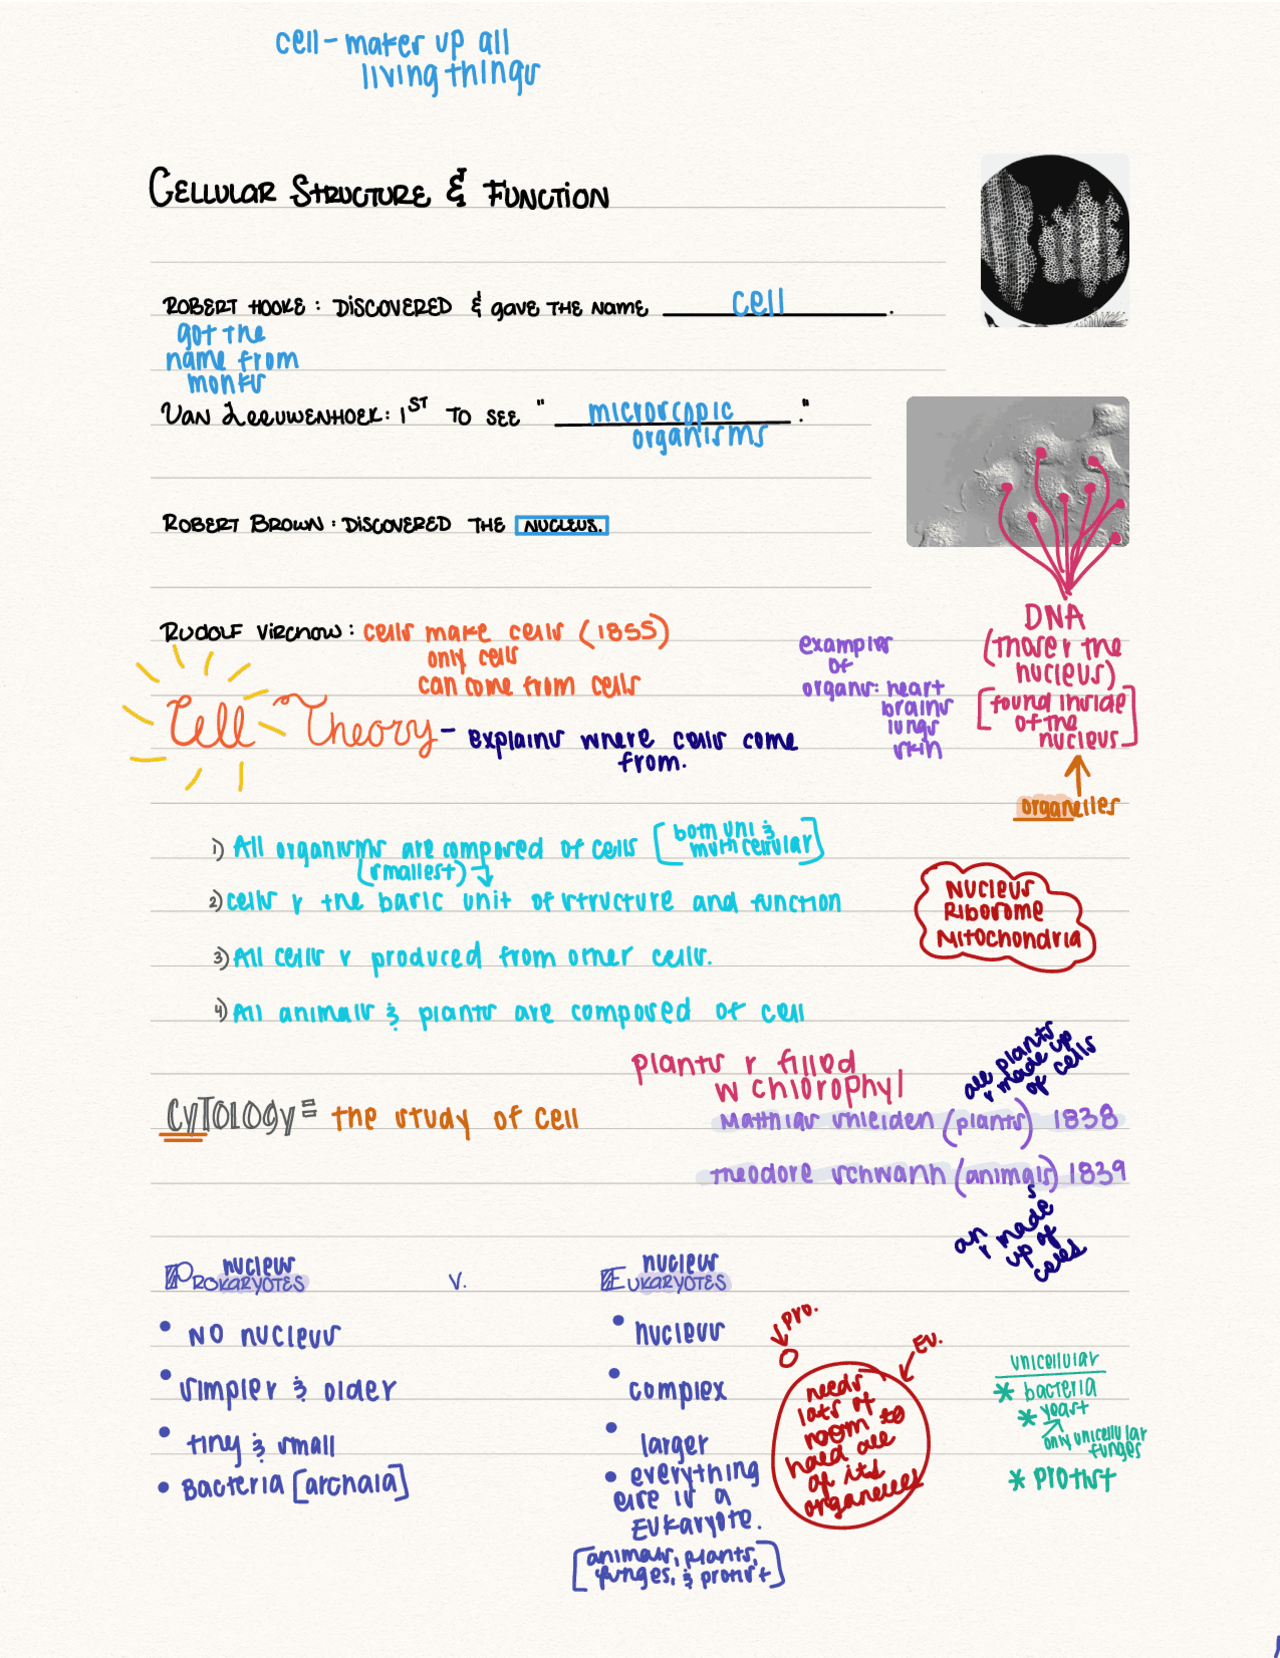 cell - makes up all
living things
CELLULAR STRUCTURE & FUNCTION
ROBERT HOOKE: DISCOVERED & gave THE Name cell.
got the
name from
monks
VAN LEEUWENHOEK: 1ST TO SEE "microscopic
organisms."
ROBERT BROWN: DISCOVERED THE NUCLEUS.
RUDOLF VIRCHOW: cells make cells (1855)
only cells
can come from cells
Cell Theory - explains where cells come
from.
examples
of
organs: heart
brains
lungs
skin
DNA
(those r the
nucleus)
[found inside
of the
nucleus]
organelles
1) All organisms are composed of cells [both uni &
multi cellular]
(smallest)
2) cells r the basic unit of structure and function
3) All cells r produced from other cells.
4) All animals & plants are composed of cell
Nucleus
Ribosome
Mitochondria
plants r filled
w chlorophyl
all plants
r made up
of cells
CYTOLOGY = the study of cell
Matthias shleiden (plants) 1838
Theodore schwann (animals) 1839
all
r made
up of
cells
nucleus
PROKARYOTES
V.
nucleus
EUKARYOTES
• NO nucleus
• simpler & older
• tiny & small
• Bacteria [archaia]
• nucleus
• complex
• larger
• everything
else is a
Eukaryote.
[animals, plants,
funges, & protist]
pro.
EU.
needs
lots of
room to
hold all
of its
organelles
unicellular
* bacteria
* yeast
only unicellular
funges
* protist